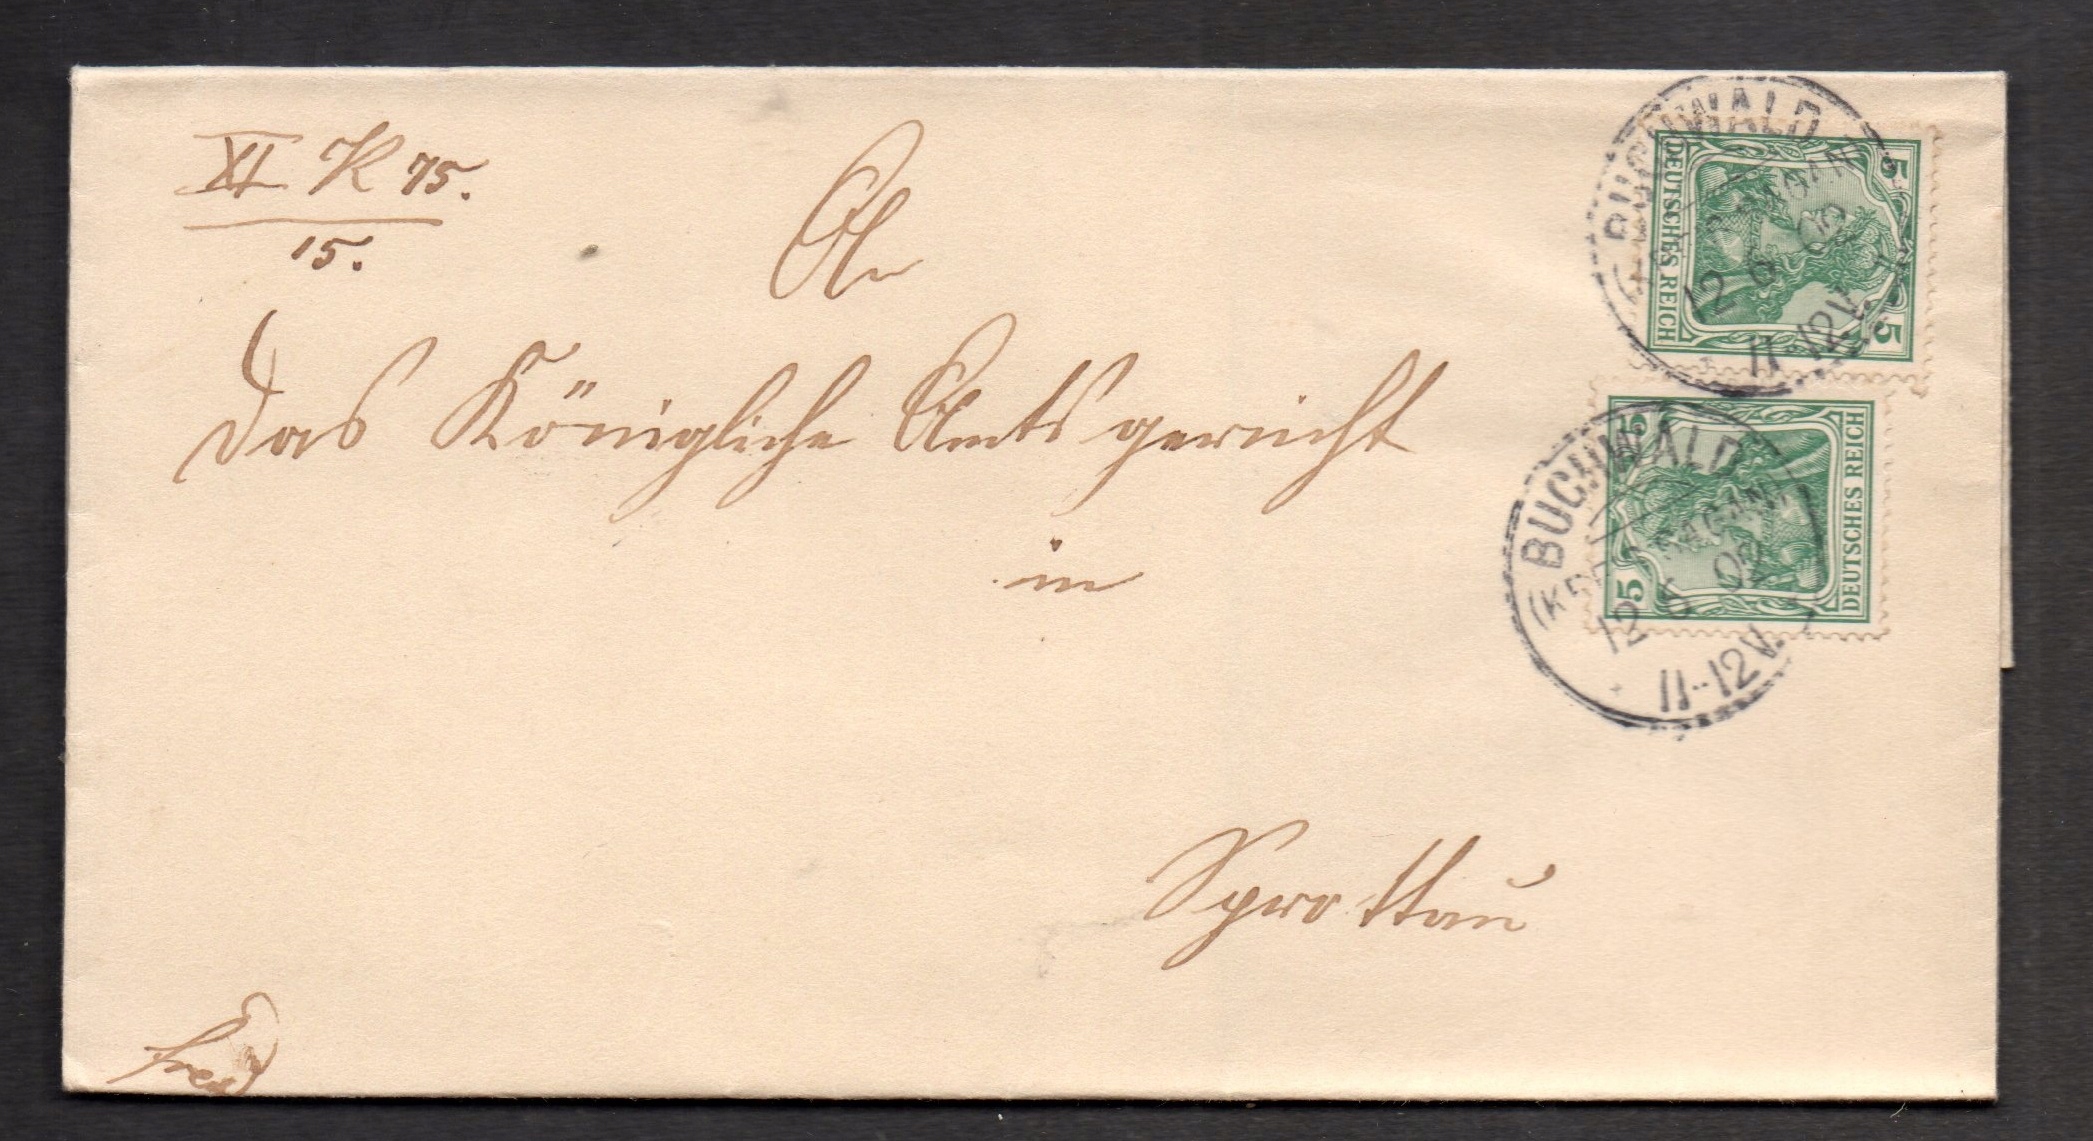 XI K 75.
15.
An
das Königliche Amtsgericht
in
Sprottau
BUCHWALD
(KR. SAGAN)
12 6 09
11-12V.
5
DEUTSCHES REICH
5
BUCHWALD
(KR. SAGAN)
12 6 09
11-12V.
5
DEUTSCHES REICH
5